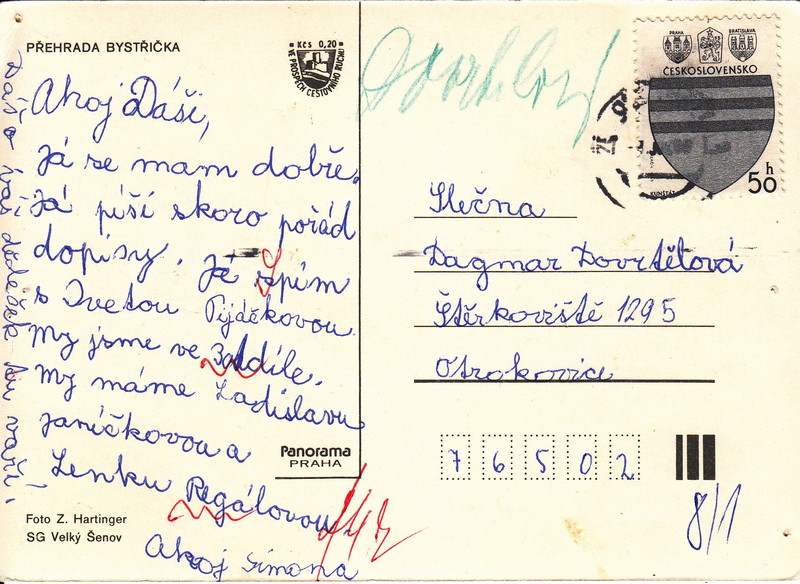 PŘEHRADA BYSTŘIČKA
Kčs 0,20
VE PROSPĚCH CESTOVNÍHO RUCHU
Ahoj Dáši,
Já se mam dobře.
Já píší skoro pořád
dopisy. Já spím
s Ivetou Pijáčkovou
My jsme ve 3. ddíle.
My máme Ladislavu
Janíčkovou a
Lenku Regálovou
Ahoj Simona
Dášo váš dědeček tu vaří.
Panorama
PRAHA
Foto Z. Hartinger
SG Velký Šenov
PRAHA
BRATISLAVA
ČESKOSLOVENSKO
KUNŠTÁT
50 h
Slečna
Dagmar Dovrtělová
Štěrkoviště 1295
Otrokovice
7 6 5 0 2
8/1